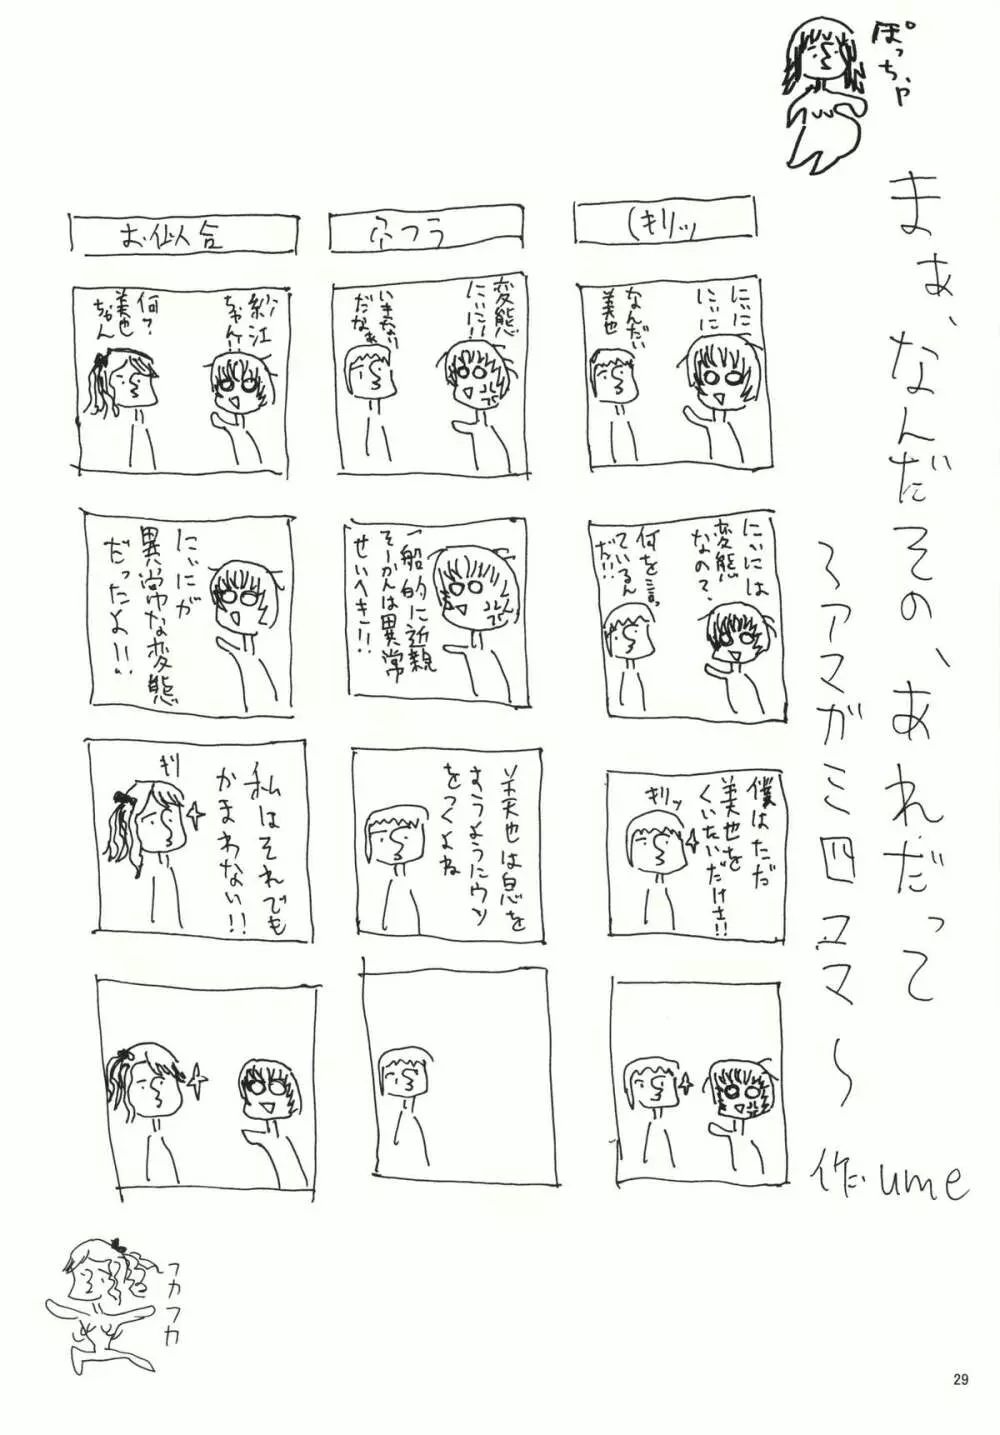 ぽっちゃ
まぁ、なんだその、あれだって
～アマガミ四コマ～
作:ume
(キリッ
にぃに
にぃに
なんだい
美也
にぃには
変態
なので、
何を言っ
ているん
だ!!
僕はただ
美也を
くいたいだけさ!!
キリッ
ふつう
変態
にぃに!!
いきなり
だなぁ
一般的に近親
そーかんは異常
せいへき!!
美也は息を
すうようにウソ
をつくよね
お似合
紗江
ちゃん!!
何?
美也
ちゃん
にぃにが
異常な変態
だったよ!!
私はそれでも
かまわない!!
キリ
フカフカ
29